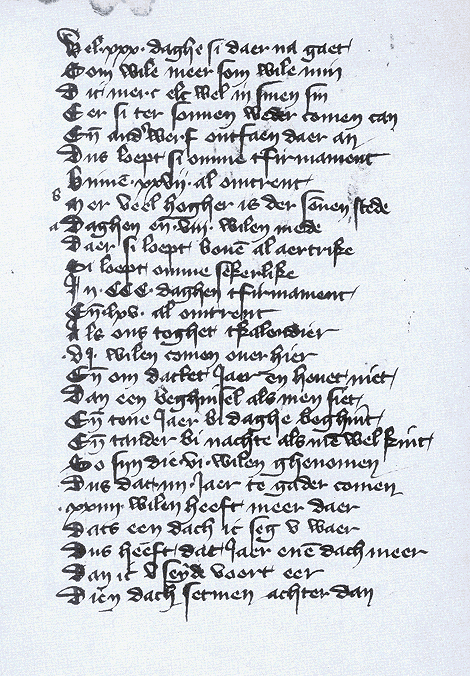 Wel .xxx. daghe si daer na gaet
Som wile meer som wile min
Dit merc elc wel in sinen sin
Eer si ter sonnen weder comen can
En̄ anderwerf ontfaen daer an
Dus loept si omme tfirmament
Binnē .xxvij. al omtrent
s Mer veel hogher is der sōnen stede
a Daghen en̄ .viij. wilen mede
Daer si loept bouē al aertrike
Si loept omme sekerlike
In .CCC. daghen tfirmament
En̄ .lxv. al omtrent
Als ons toghet tkalendier
.vj. wilen comen ouer hier
En̄ om dattet Jaer en houet niet
Dan een beghinsel als men siet
En̄ tone Jaer bi daghe beghint
En̄ tander bi nachte als mē wel kint
So sijn die .vi. wilen ghenomen
Dus dat .iiij. Jaer te gader comen
.xxiiij. wilen heeft meer daer
Dats een dach ic seg v waer
Dus heeft dat Jaer enē dach meer
Dan ic v seyde voert eer
Dien dach setmen achter dan